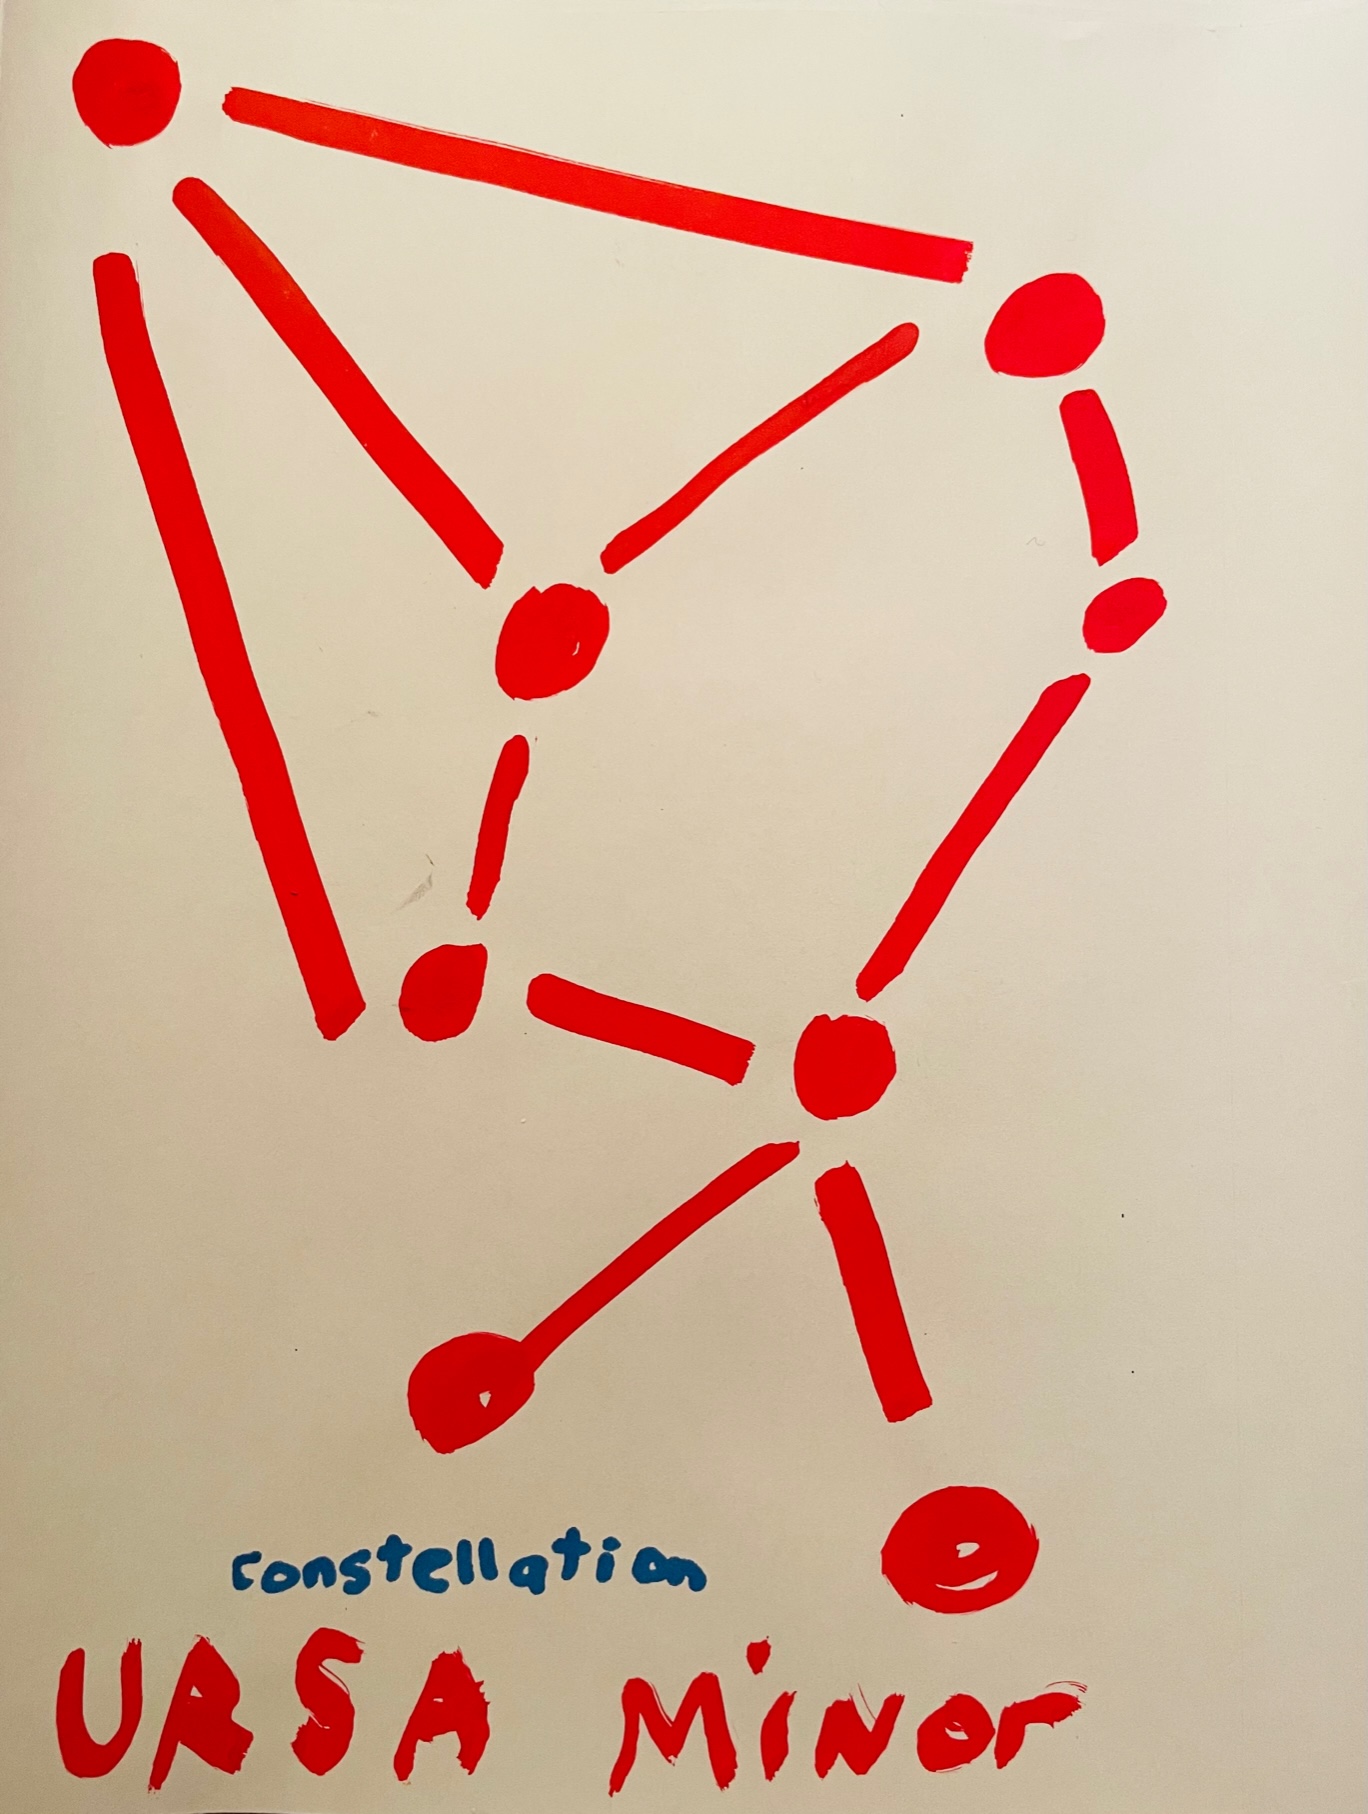 constellation
URSA MiNor